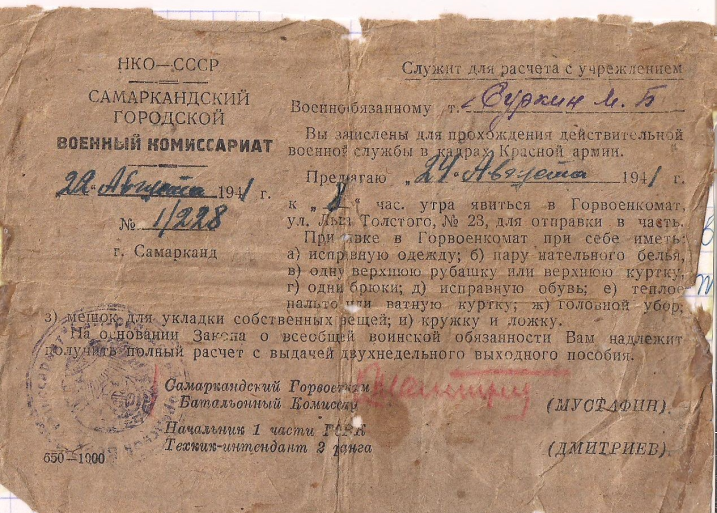 НКО—СССР
САМАРКАНДСКИЙ
ГОРОДСКОЙ
ВОЕННЫЙ КОМИССАРИАТ
22 Августа 1941 г.
№ 1/228
г. Самарканд
Служит для расчета с учреждением
Военнообязанному т. Суркин М. Б
Вы зачислены для прохождения действительной
военной службы в кадрах Красной армии.
Предлагаю „24 Августа 1941 г.
к „ " час. утра явиться в Горвоенкомат,
ул. Льва Толстого, № 23, для отправки в часть.
При явке в Горвоенкомат при себе иметь:
а) исправную одежду; б) пару нательного белья,
в) одну верхнюю рубашку или верхнюю куртку,
г) одни брюки; д) исправную обувь; е) теплое
пальто или ватную куртку; ж) головной убор;
з) мешок для укладки собственных вещей; и) кружку и ложку.
На основании Закона о всеобщей воинской обязанности Вам надлежит
получить полный расчет с выдачей двухнедельного выходного пособия.
Самаркандский Горвоенком
Батальонный Комиссар (МУСТАФИН).
Начальник 1 части
Техник-интендант 2 ранга (ДМИТРИЕВ).
650—1000